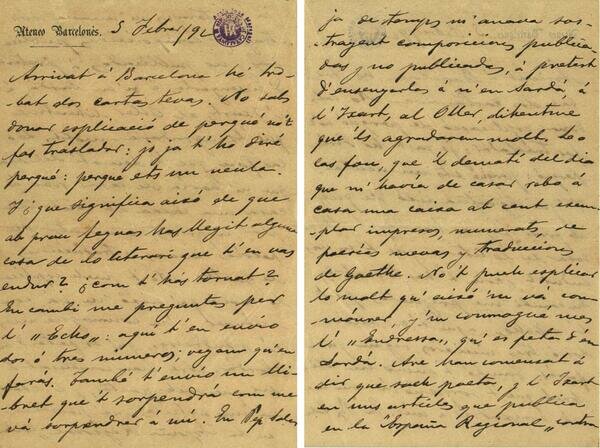 Ateneo Barcelonés.
5 Febrer/92
Arrivat á Barcelona hé tro-
bat dos cartas tevas. No sabs
donar esplicació de perqué no't
fas trasladar: jo ja t'ho diré
perqué: perque ets un neula.
Y ¿que significa aixó de que
ab prou feynas has llegit alguna
cosa de lo literari que t'en vas
endur? ¿com t'has tornat?
En cambi me preguntas per
l' "Echo": aquí t'en envio
dos ó tres numeros; vejam qu'en
farás. També t'envio un lli-
bret que 't sorpendrá com me
vá sorpendrer á mí. En Pep Sales
ja de temps m'anava sos-
trayent composicions publica-
das y no publicadas, á pretext
d'ensenyarlas á n'en Sardá, á
l'Ixart, al Oller, dihentme
que 'ls agradarian molt. Lo
cas fou, que 'l dematí del dia
que m'havia de casar rebo á
casa una caixa ab cent exem-
plars impresos, numerats, de
poesías mevas y traduccions
de Goethe. No't puch esplicar
lo molt qu'aixó 'm vá com-
móurer, y 'm conmogué més
l' "Endressa", qu'es feta d'en
Sardá. Are han comensat á
dir que soch poeta, y l'Ixart
en uns articles que publica
en la "España Regional" contra